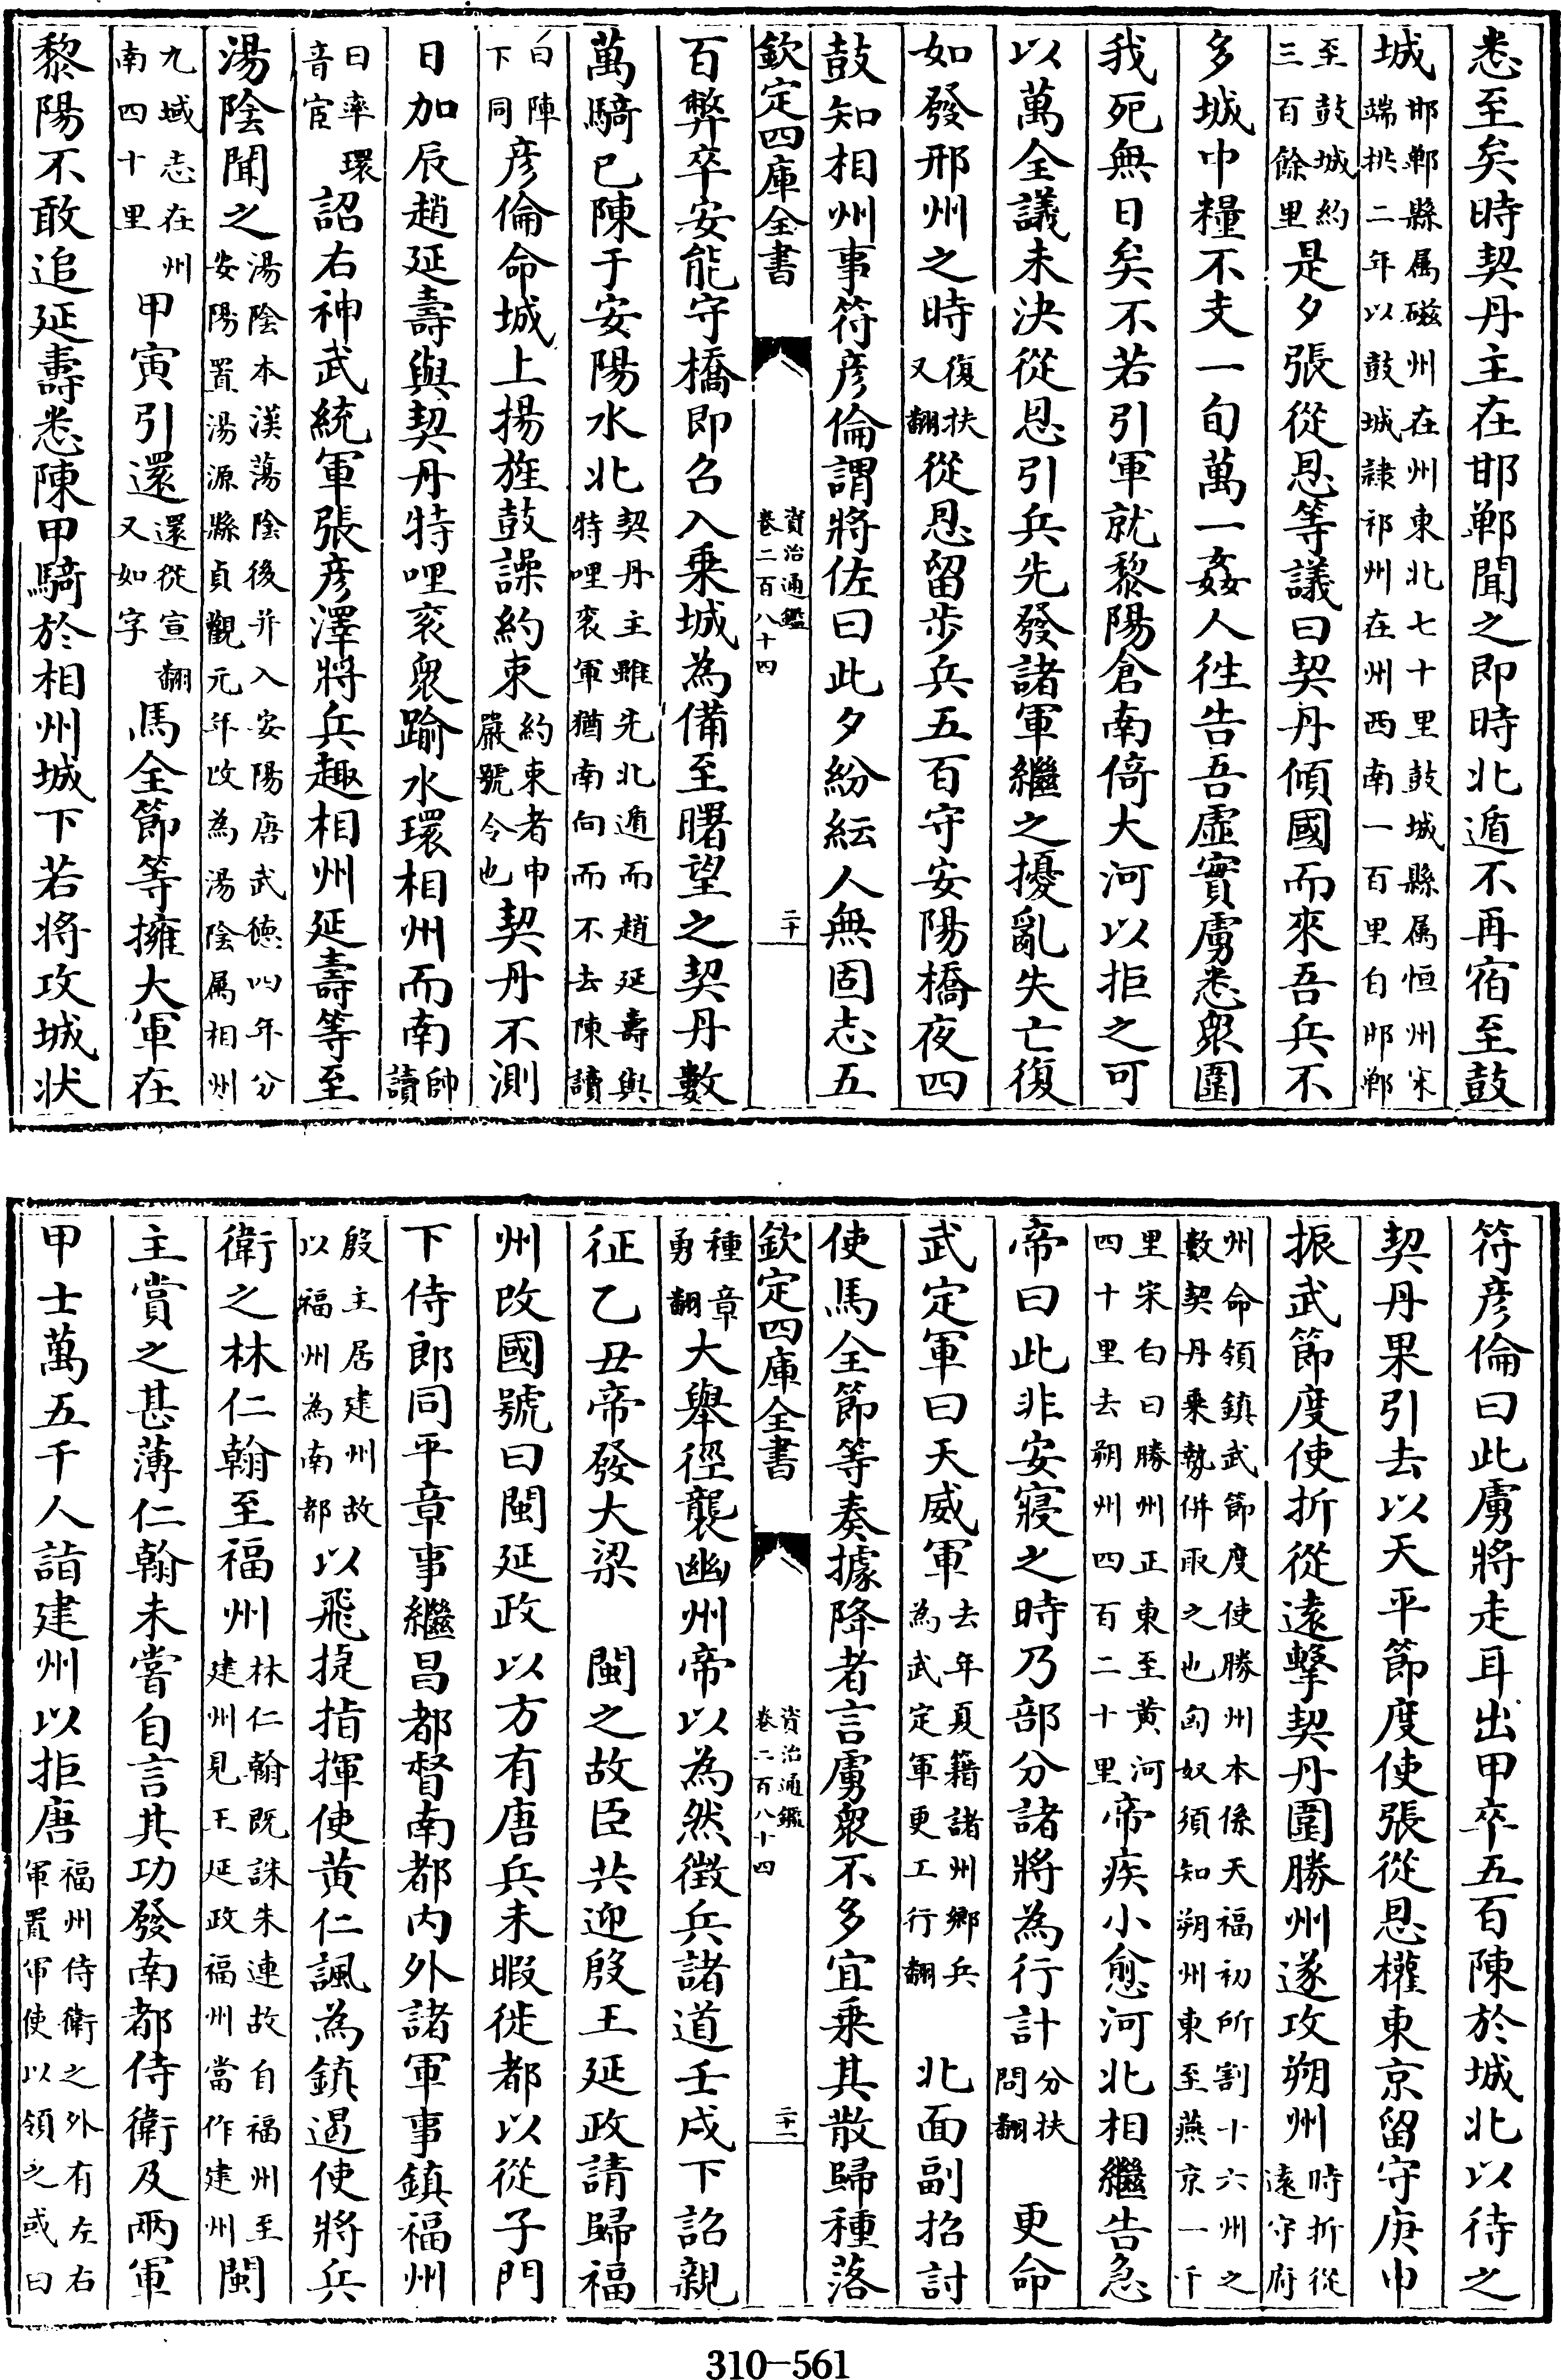 悉至矣時契丹主在邯鄲聞之即時北遁不再宿至鼓
城邯鄲縣属磁州在州東北七十里鼓城縣属恒州宋端拱二年以鼓城隷祁州在州西南一百里自邯鄲
至鼓城約三百餘里是夕張從恩等議曰契丹傾國而來吾兵不
多城中糧不支一旬萬一姦人徃告吾虛實虜悉衆圍
我死無日矣不若引軍就黎陽倉南倚大河以拒之可
以萬全議未決從恩引兵先發諸軍繼之擾亂失亡復
如發邢州之時復扶又翻從恩留步兵五百守安陽橋夜四
鼓知相州事符彦倫謂將佐曰此夕紛紜人無固志五
欽定四庫全書 資治通鑑卷二百八十四 二十
百弊卒安能守橋即召入乗城為備至曙望之契丹數
萬騎已陳于安陽水北契丹主雖先北遁而趙延壽與特哩衮軍猶南向而不去陳讀
曰陣下同彦倫命城上揚旌鼓譟約束約束者申嚴號令也契丹不測
日加辰趙延壽與契丹特哩衮衆踰水環相州而南帥讀
曰率環音宦詔右神武統軍張彦澤將兵趣相州延壽等至
湯陰聞之湯陰本漢蕩陰後并入安陽唐武德四年分安陽置湯源縣貞觀元年改為湯陰属相州
九域志在州南四十里甲寅引還還從宣翻又如字馬全節等擁大軍在
黎陽不敢追延壽悉陳甲騎於相州城下若将攻城状
符彦倫曰此虜將走耳出甲卒五百陳於城北以待之
契丹果引去以天平節度使張從恩權東京留守庚申
振武節度使折從逺擊契丹圍勝州遂攻朔州時折從逺守府
州命領鎮武節度使勝州本係天福初所割十六州之數契丹乗勢併取之也匈奴須知朔州東至燕京一千
里宋白曰勝州正東至黄河四十里去朔州四百二十里帝疾小愈河北相繼告急
帝曰此非安寢之時乃部分諸將為行計分扶問翻 更命
武定軍曰天威軍去年夏籍諸州鄉兵為武定軍更工行翻 北面副招討
使馬全節等奏據降者言虜衆不多宜乗其散歸種落
欽定四庫全書 資治通鑑卷二百八十四 二十一
種章勇翻大舉徑襲幽州帝以為然徵兵諸道壬戌下詔親
征乙丑帝發大梁 閩之故臣共迎殷王延政請歸福
州改國號曰閩延政以方有唐兵未暇徙都以從子門
下侍郎同平章事繼昌都督南都内外諸軍事鎮福州
殷主居建州故以福州為南都以飛捷指揮使黄仁諷為鎮遏使將兵
衛之林仁翰至福州林仁翰既誅朱連故自福州至建州見王延政福州當作建州閩
主賞之甚薄仁翰未嘗自言其功發南都侍衛及兩軍
甲士萬五千人詣建州以拒唐福州侍衛之外有左右軍置軍使以領之或曰
310-561